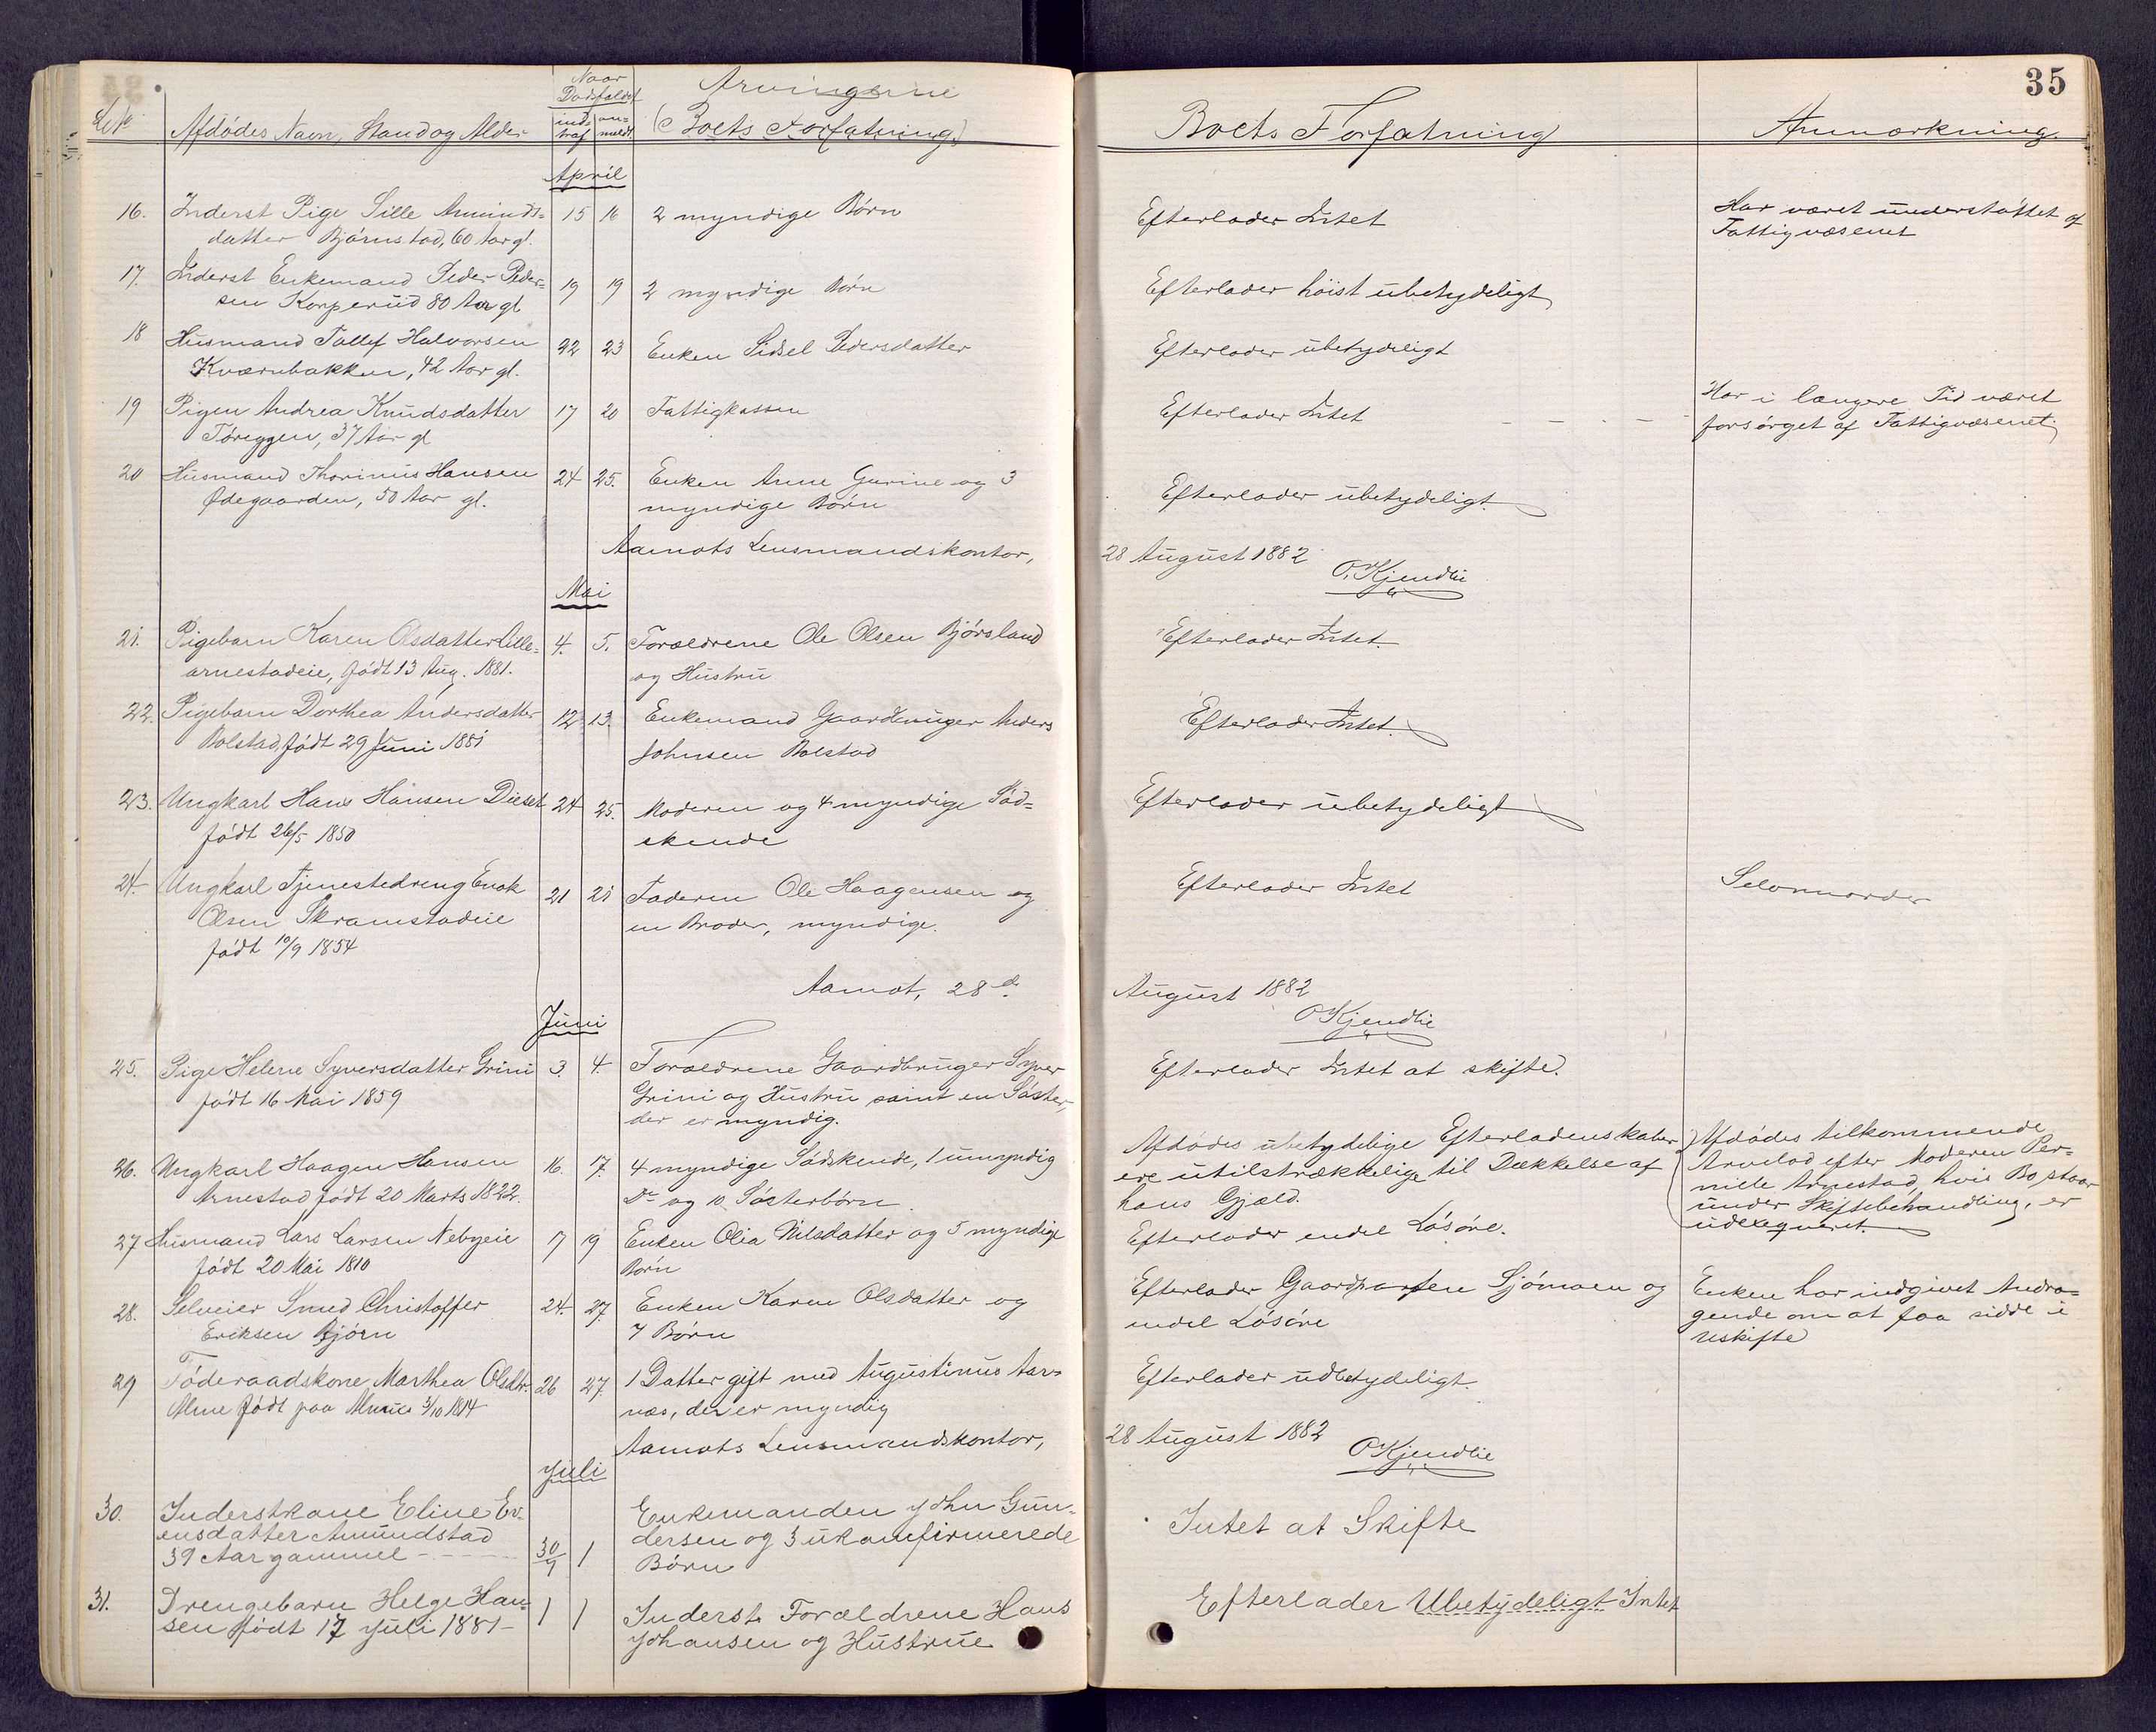 35
Naar
Dødsfaldet
Arvingerne
LNo
Afdødes Navn, Stand og Alder
ind-
traf
an-
meldt
(Boets Forfatning)
Boets Forfatning
Anmærkning.
April
16. Inderst Pige Sille Amunds= 15 16 2 myndige Børn Efterlader Intet Har været understøttet af
datter Bjørnstad, 60 Aar gl. Fattigvæsenet
17. Inderst Enkemand Peder Peder= 19 19 2 myndige Børn Efterlader høist ubetydeligt
sen Korperud 80 Aar gl
18 Husmand Tollef Halvorsen 22 23 Enken Sidsel Pedersdatter Efterlader ubetydeligt
Kværnbakken, 42 Aar gl.
19 Pigen Andrea Knudsdatter 17 20 Fattigkassen Efterlader Intet - - - - Har i længere Tid været
Tøreggen, 37 Aar gl forsørget af Fattigvæsenet
20 Husmand Thorinus Hansen 24 25. Enken Anne Gurine og 3 Efterlader ubetydeligt
Ødegaarden, 50 Aar gl. myndige Børn
Aamots Lensmandskontor, 28 August 1882
O. Kjendlie
Mai
21. Pigebarn Karen Olsdatter Lille= 4. 5. Forældrene Ole Olsen Bjørsland Efterlader Intet.
arnestadeie, født 13 Aug. 1881. og Hustru
22. Pigebarn Dorthea Andersdatter 12 13. Enkemand Gaardbruger Anders Efterlader Intet.
Bolstad, født 29 Juni 1881 Johnsen Bolstad
23. Ungkarl Hans Hansen Dieset 24 25. Moderen og 4 myndige Sød= Efterlader ubetydeligt
født 26/5 1850 skende
24. Ungkarl Tjenestedreng Enok 21 21 Faderen Ole Haagensen og Efterlader Intet Selvmorder
Olsen Skramstadeie en Broder, myndige.
født 10/9 1854
Aamot, 28de August 1882
O Kjendlie
Juni
25. Pige Helene Syversdatter Grini 3. 4. Forældrene Gaardbruger Syver Efterlader Intet at skifte.
født 16 Mai 1859 Grini og Hustru samt en Søster,
der er myndig.
26. Ungkarl Haagen Hansen 16. 17. 4 myndige Sødskende, 1 umyndig Afdødes ubetydelige Efterladenskaber Afdødes tilkommende
Arnestad, født 20 Marts 1822. Do og 10 Søsterbørn. ere utilstrækkelige til Dækkelse af Arvelod efter Moderen Per=
hans Gjæld. nille Arnestad, hvis Bo staar
under Skiftebehandling, er
udexequeret.
27 Husmand Lars Larsen Nebyeie 17 19 Enken Olia Nilsdatter og 5 myndige Efterlader endel Løsøre.
født 20 Mai 1810 Børn
28. Selveier Smed Christoffer 24. 27. Enken Karen Olsdatter og Efterlader Gaardparten Sjømoen og Enken har indgivet Andra=
Eriksen Bjørn 7 Børn endel Løsøre gende om at faa sidde i
Uskifte
29 Føderaadskone Marthea Olsdtr. 26 27. 1 Datter gift med Augustinus Aar= Efterlader udbetydeligt.
Alme født paa 3/10 1814 næs, der er myndig
Aamots Lensmandskontor, 28 August 1882
O Kjendlie
Juli
30. Inderstkone Eline Ev= Enkemanden John Gun= Intet at Skifte
ensdatter Amundstad dersen og 3 ukonfirmerede
39 Aar gammel - - - 30/7 1 Børn
31. Drengebarn Helge Han= 1 1 Inderst Forældrene Hans Efterlader Ubetydeligt Intet
sen født 17 Juli 1881 - Johansen og Hustrue